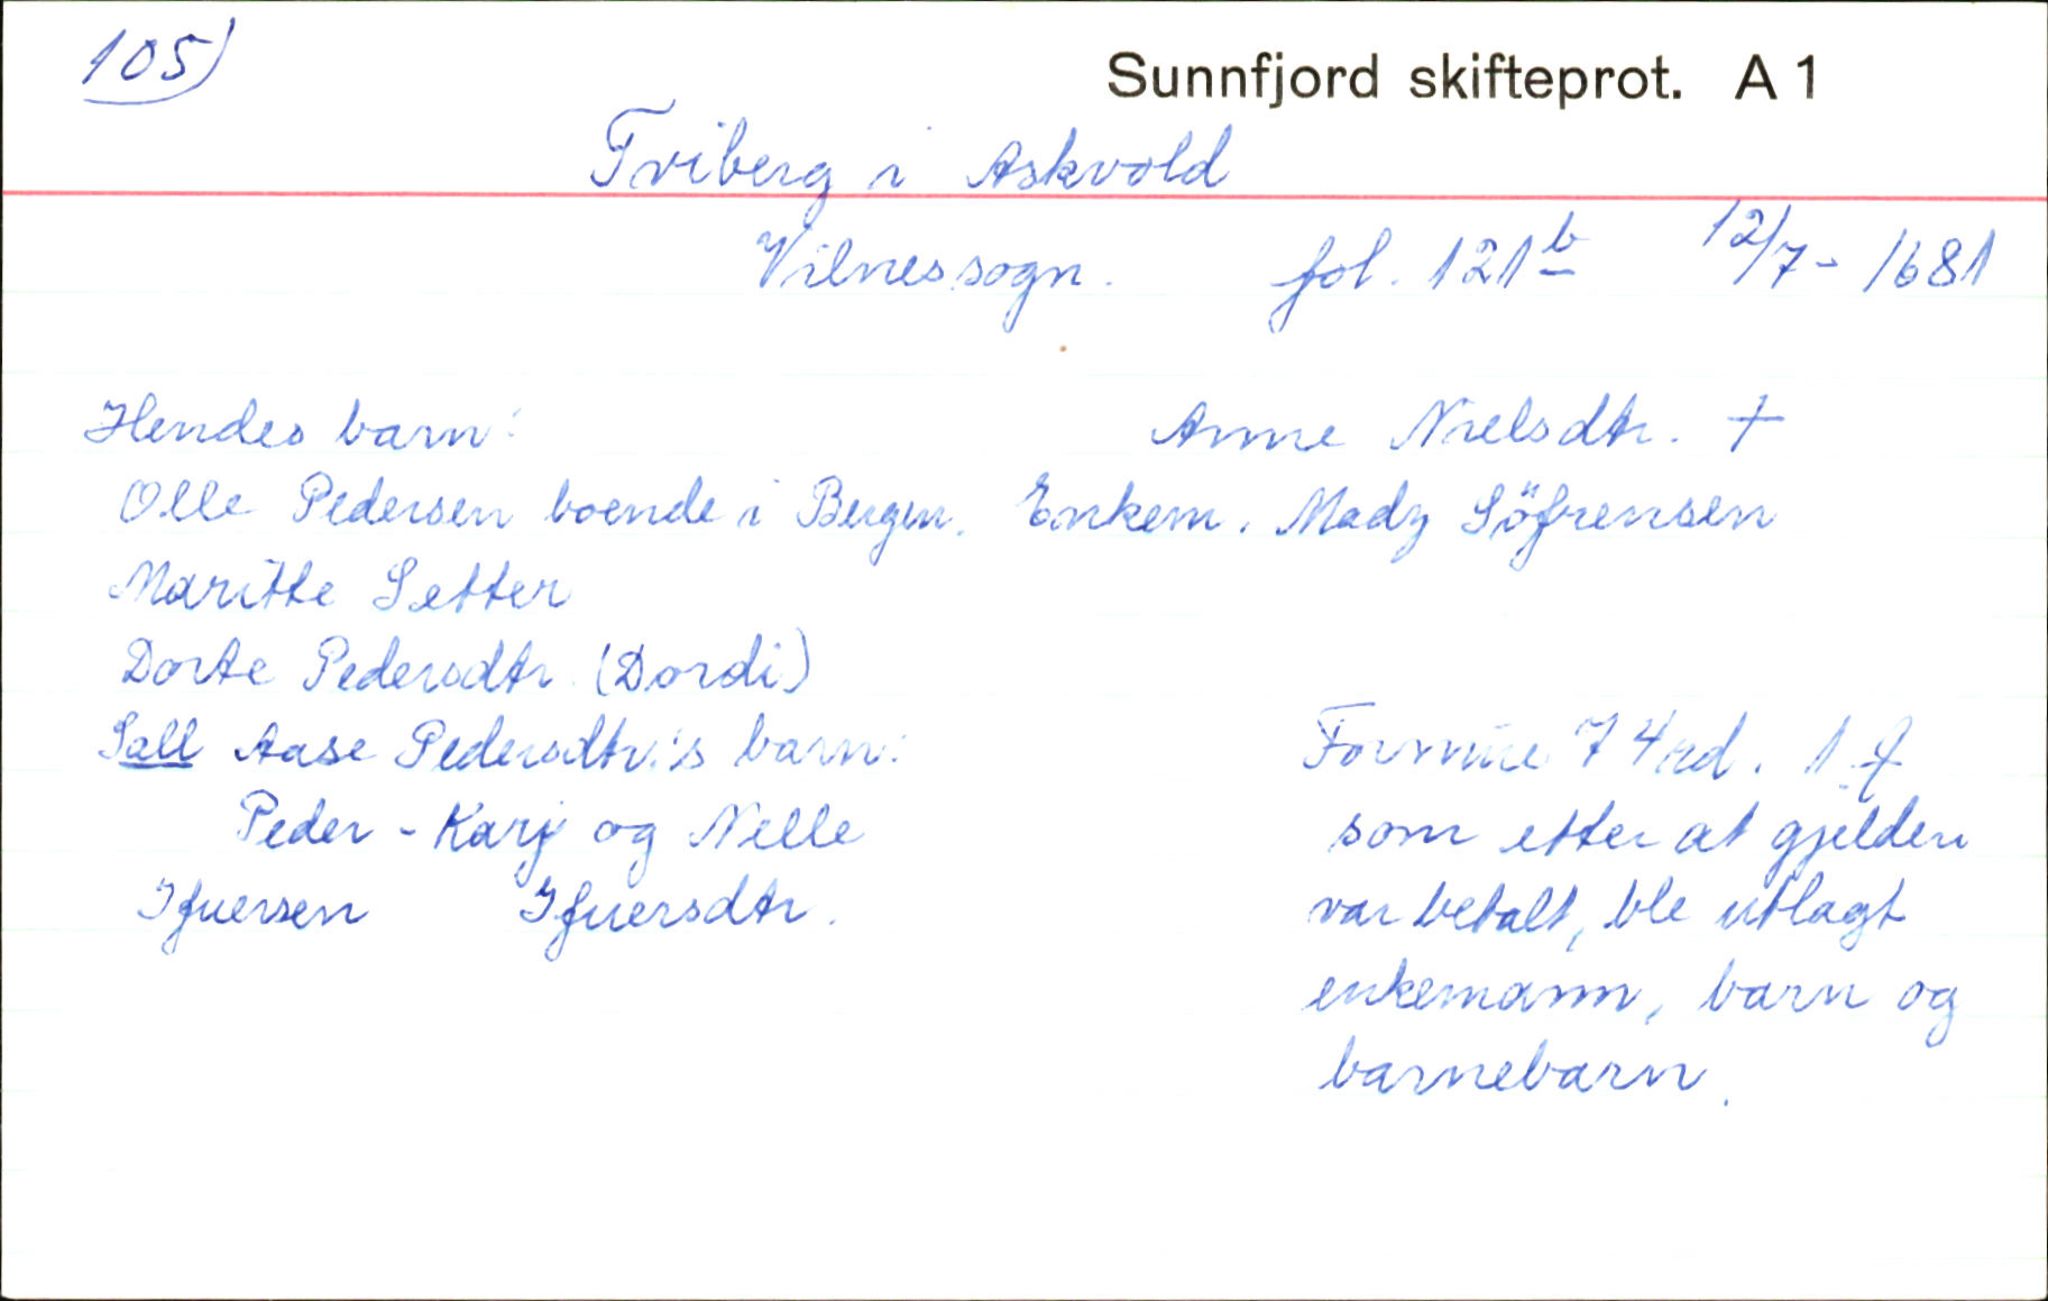 105)
Sunnfjord skifteprot. A 1
Friberg i Askvold
Vilnes sogn. fol. 121 b 12/7 - 1681
Hendes barn: Anne Nielsdtr. †
Olle Pedersen boende i Bergen. Enkem. Madz Söfrensen
Maritte Setter
Dorte Pedersdtr. (Dordi)
Sall Aase Pedersdtr.'s barn:
Peder - Karj og Nelle
Ifuersen Ifuersdtr.
Formue 74 rd. 1
som etter at gjelden
var betalt, ble utlagt
enkemann, barn og
barnebarn.